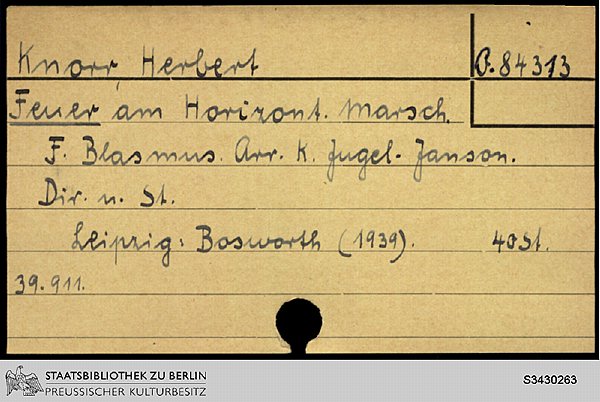 Knorr, Herbert O. 84313
Feuer am Horizont. Marsch.
F. Blasmus. Arr. K. Jugel-Janson.
Dir. u. St.
Leipzig: Bosworth (1939). 40 St.
39.911.
STAATSBIBLIOTHEK ZU BERLIN
PREUSSISCHER KULTURBESITZ
S3430263